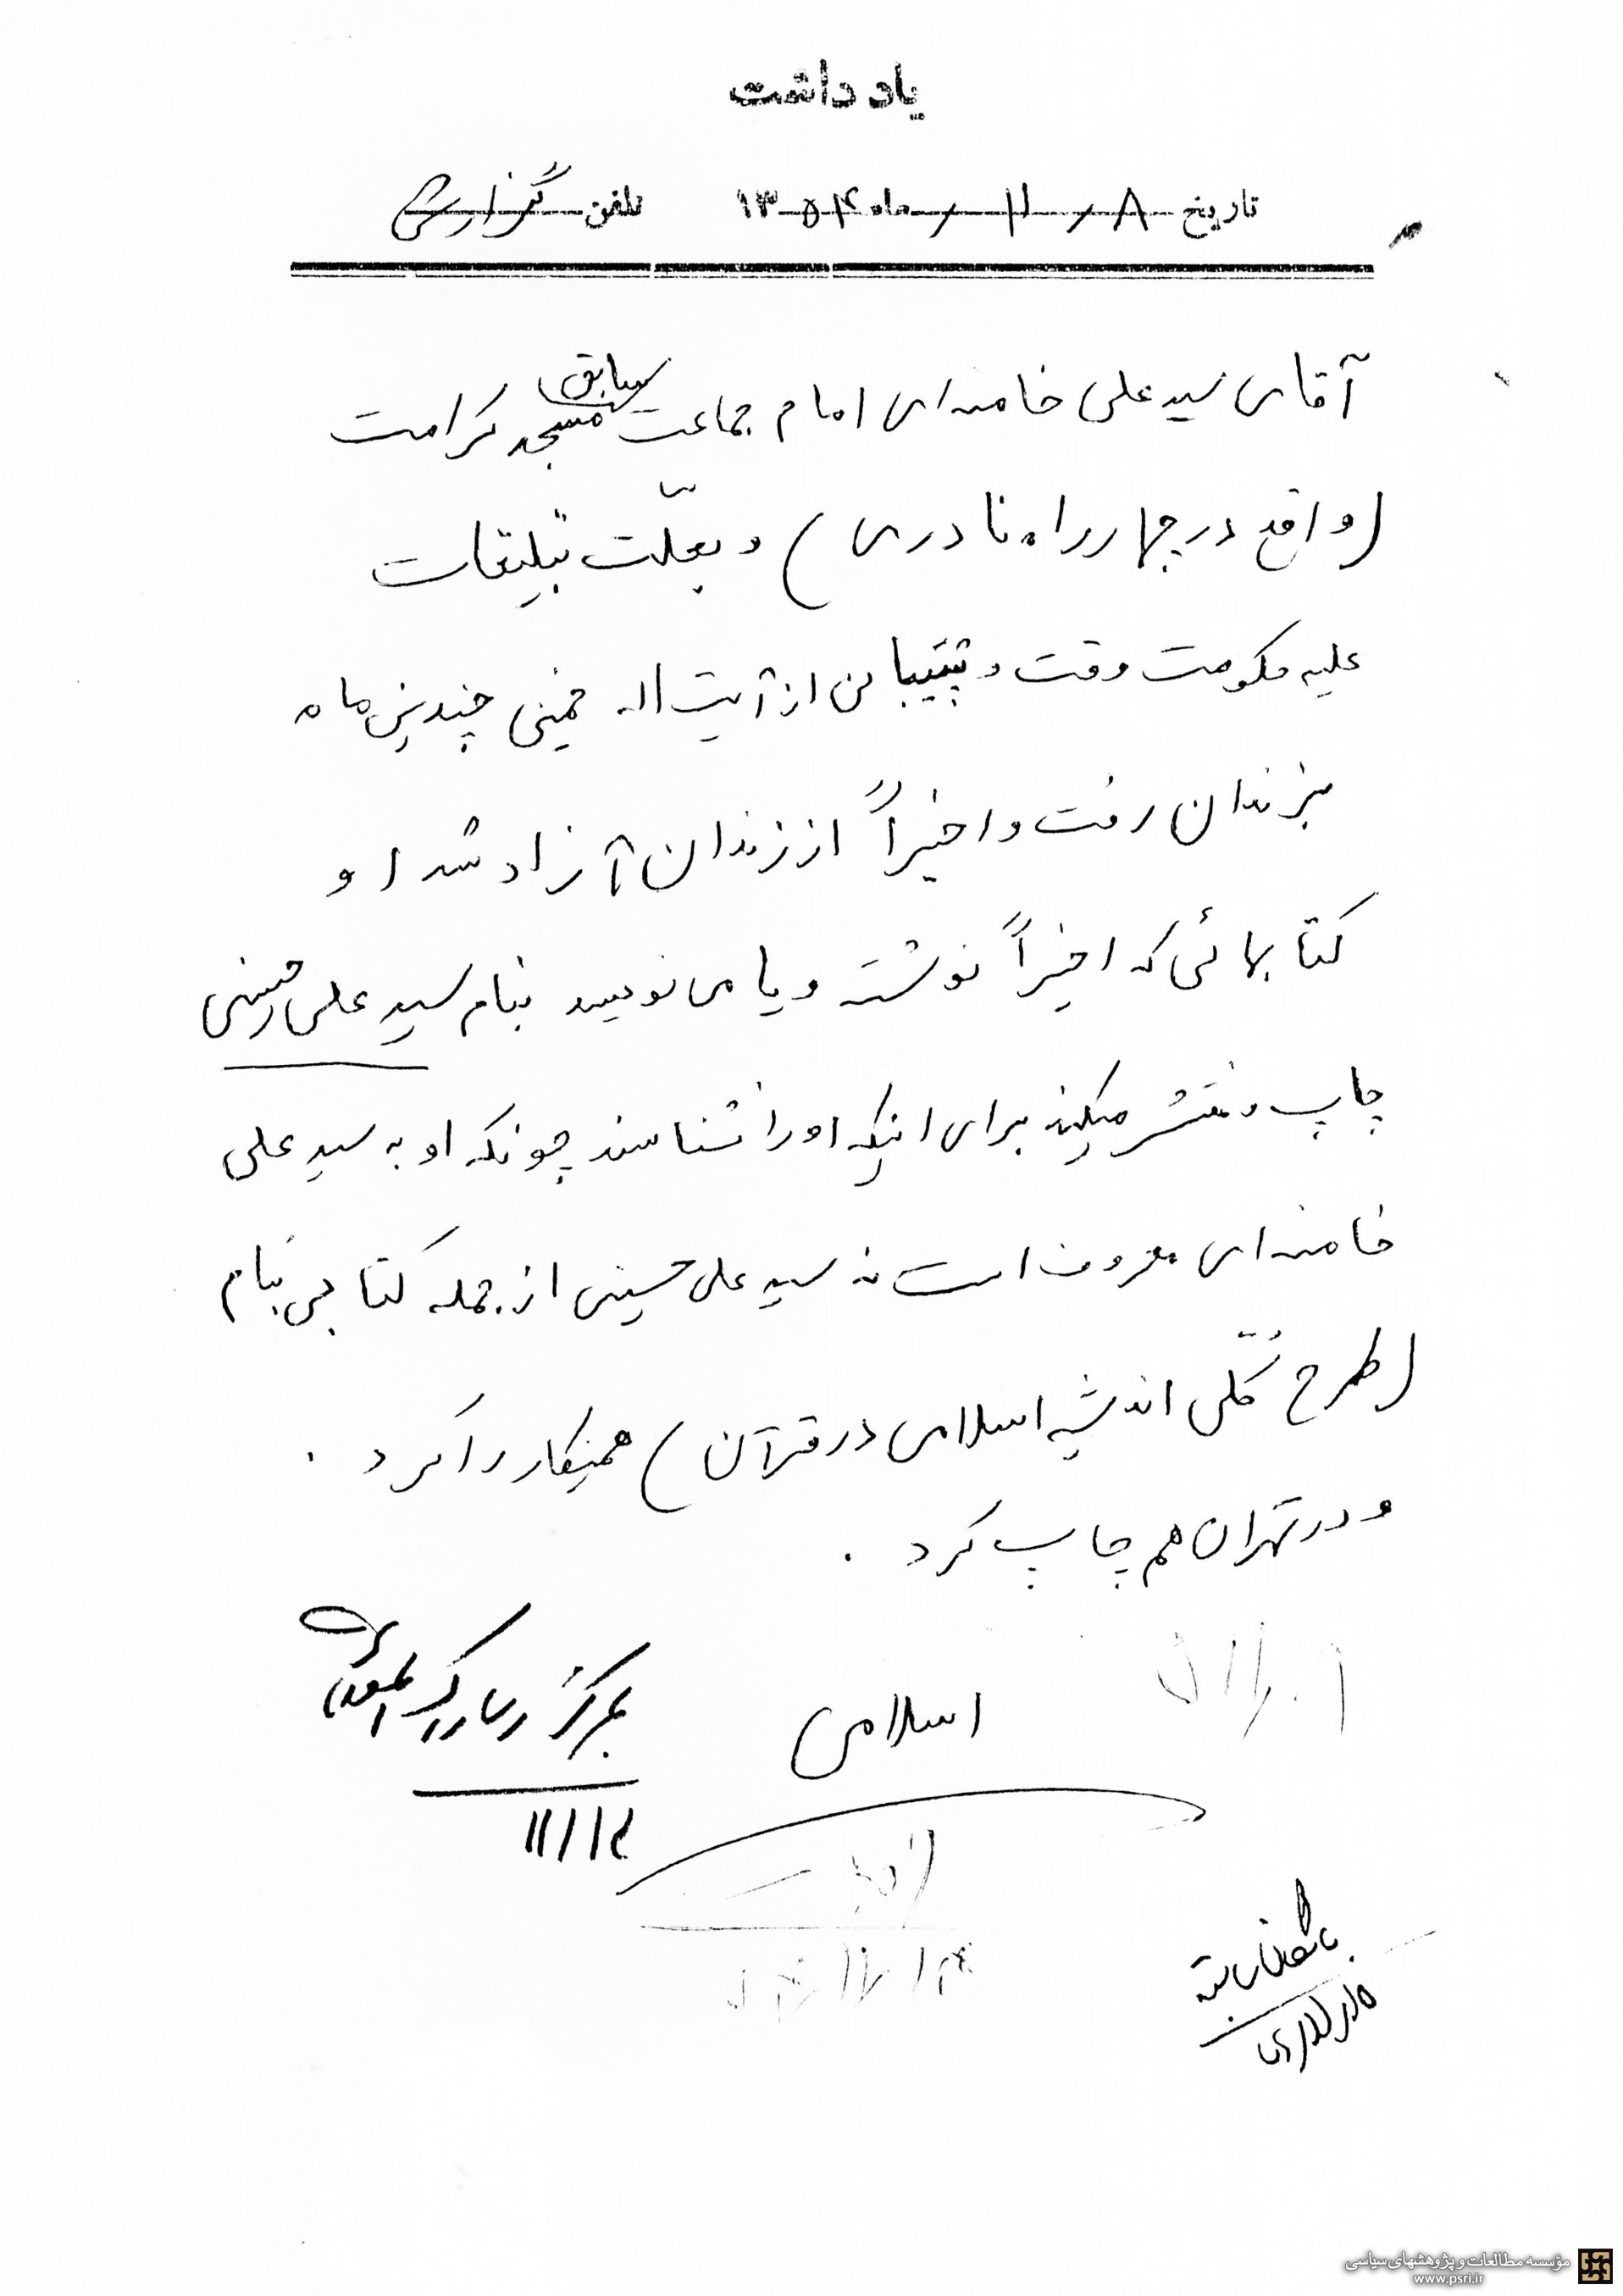 یادداشت
تاریخ ۸ / ۱۱ / ماه ۱۳۵۴ تلفن گزارش
آقای سید علی خامنه‌ای امام جماعت سابق مسجد کرامت
(واقع در چهارراه نادری) و بعلّت تبلیغات
علیه حکومت وقت و پشتیبانی از آیت اله خمینی چندین ماه
بزندان رفت و اخیراً از زندان آزاد شد او
کتابهائی که اخیراً نوشته و یا می نویسد بنام سید علی حسینی
چاپ و منتشر میکند برای اینکه او را نشناسند چونکه او به سید علی
خامنه‌ای معروف است نه سید علی حسینی از جمله کتابی بنام
(طرح کلّی اندیشه اسلامی در قرآن) همینکار را کرد .
و در تهران هم چاپ کرد .
اسلامی
۱۱/۱۲
مؤسسه مطالعات و پژوهشهای سیاسی
www.psri.ir